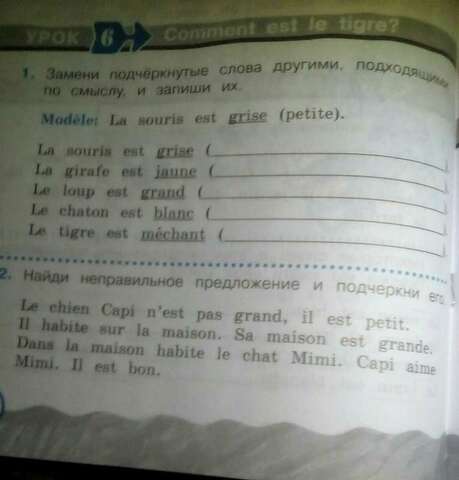 УРОК 6 Comment est le tigre?
1. Замени подчёркнутые слова другими, подходящими
по смыслу, и запиши их.
Modèle: La souris est grise (petite).
La souris est grise (
La girafe est jaune (
Le loup est grand (
Le chaton est blanc (
Le tigre est méchant (
2. Найди неправильное предложение и подчеркни его.
Le chien Capi n'est pas grand, il est petit.
Il habite sur la maison. Sa maison est grande.
Dans la maison habite le chat Mimi. Capi aime
Mimi. Il est bon.